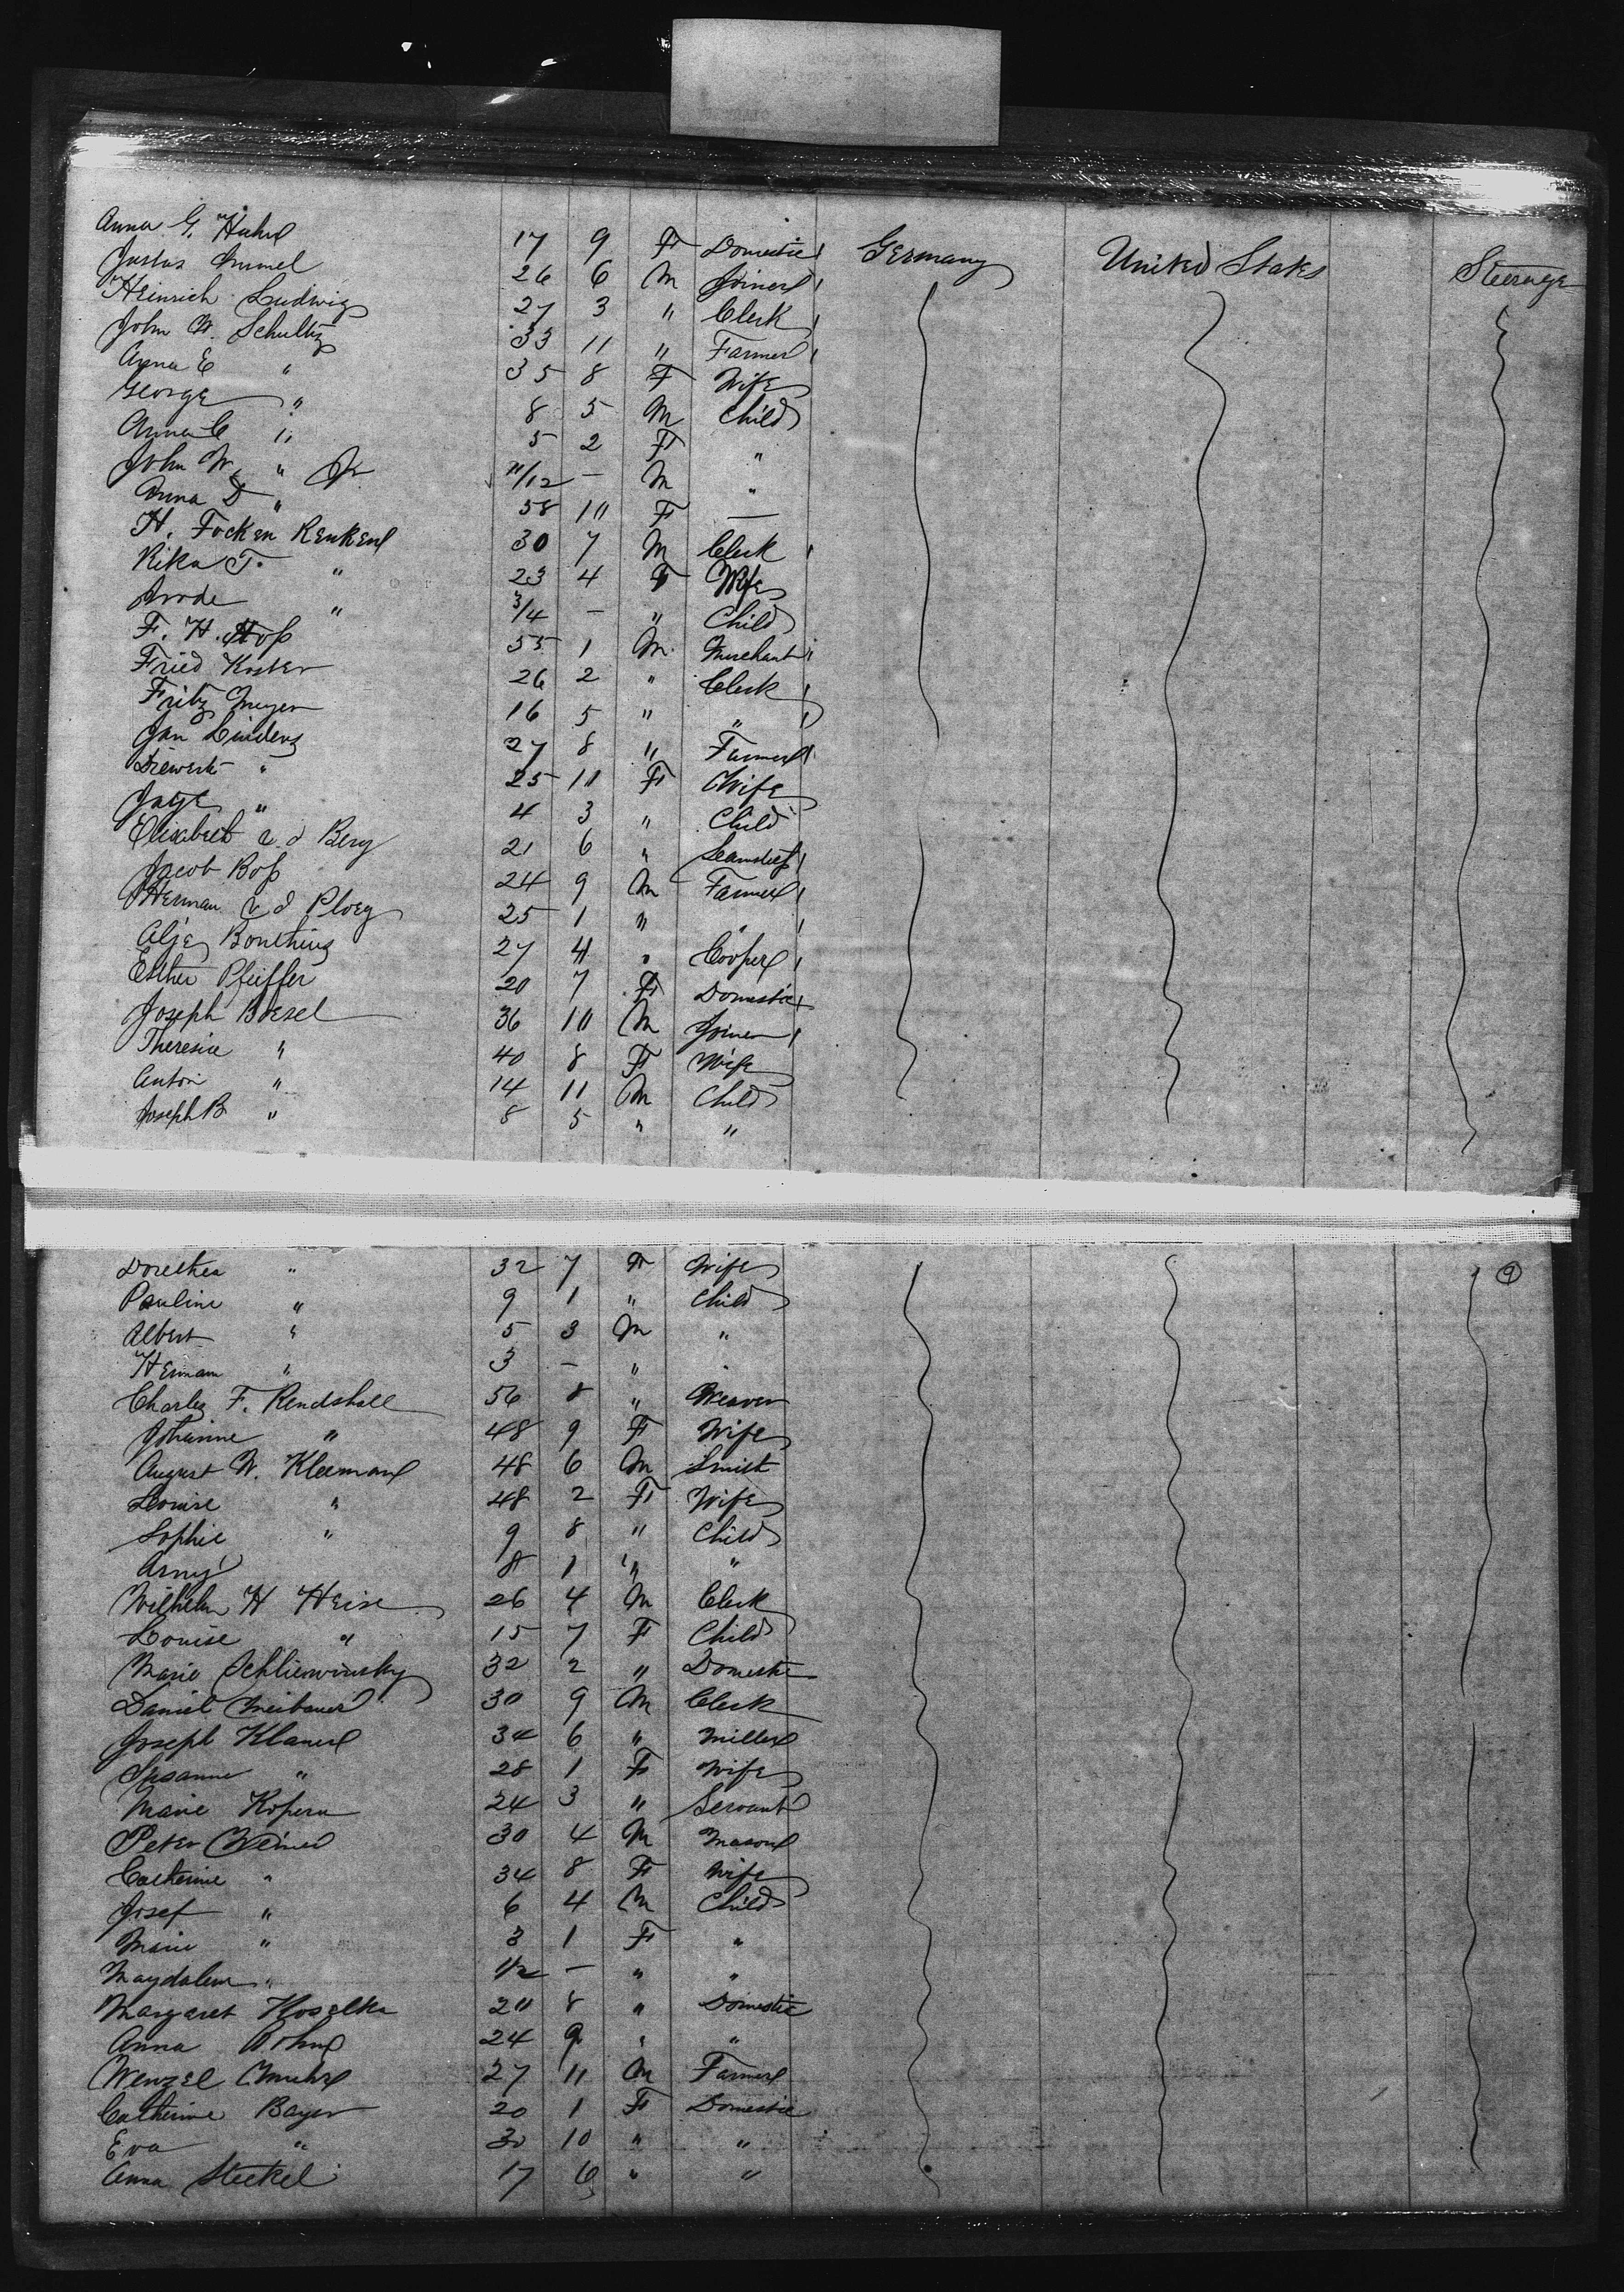 Anna G. Huhn 17 9 F Domestic Germany United States Steerage
Justus Immel 26 6 M Joiner
Heinrich Ludwig 27 3 " Clerk
John W. Schultz 33 11 " Farmer
Anna E " 35 8 F Wife
George " 8 5 M Child
Anna C " 5 2 F "
John W. " Jr 11/12 - M "
Anna D " 58 10 F —
H. Focken Renken 30 7 M Clerk
Rika T. " 23 4 F Wife
" 3/4 - " Child
F. H. Hoss 55 1 M Merchant
Fried Koster 26 2 " Clerk
Fritz Meyer 16 5 " "
Jan Linders 27 8 " Farmer
" 25 10 F Wife
" 4 3 " Child
Elisabeth v d Berg 21 6 " Seamstress
Jacob Boss 24 9 M Farmer
Herman v d Ploeg 25 1 " "
27 4 " Cooper
Esther Pfeiffer 20 7 F Domestic
Joseph Boesel 36 10 M Joiner
Theresia " 40 8 F Wife
Anton " 14 11 M Child
Joseph B " 8 5 " "
Dorethea " 32 7 F Wife 9
Pauline " 9 1 " Child
Albert " 5 3 M "
Herman " 3 - " "
Charles F. Rendshall 56 8 " Weaver
Johanne " 48 9 F Wife
August W. Kleeman 48 6 M Smith
Louise " 48 2 F Wife
Sophie " 9 8 " Child
8 1 " "
Wilhelm H Heise 26 4 M Clerk
Louise " 15 7 F Child
Marie Schliewinsky 32 2 " Domestic
Daniel 30 9 M Clerk
Joseph Klaner 34 6 " Miller
Susanne " 28 1 F Wife
Marie Kopera 24 3 " Servant
Peter Weiner 30 4 M Mason
Catherine " 34 8 F Wife
Josef " 6 4 M Child
Marie " 3 1 F "
Magdalena " 1/2 - " "
Margaret Kosalka 20 8 " Domestic
Anna 24 9 " "
Wenzel 27 11 M Farmer
Catherine Bayer 20 1 F Domestic
Eva " 30 10 " "
Anna Steckel 17 6 " "